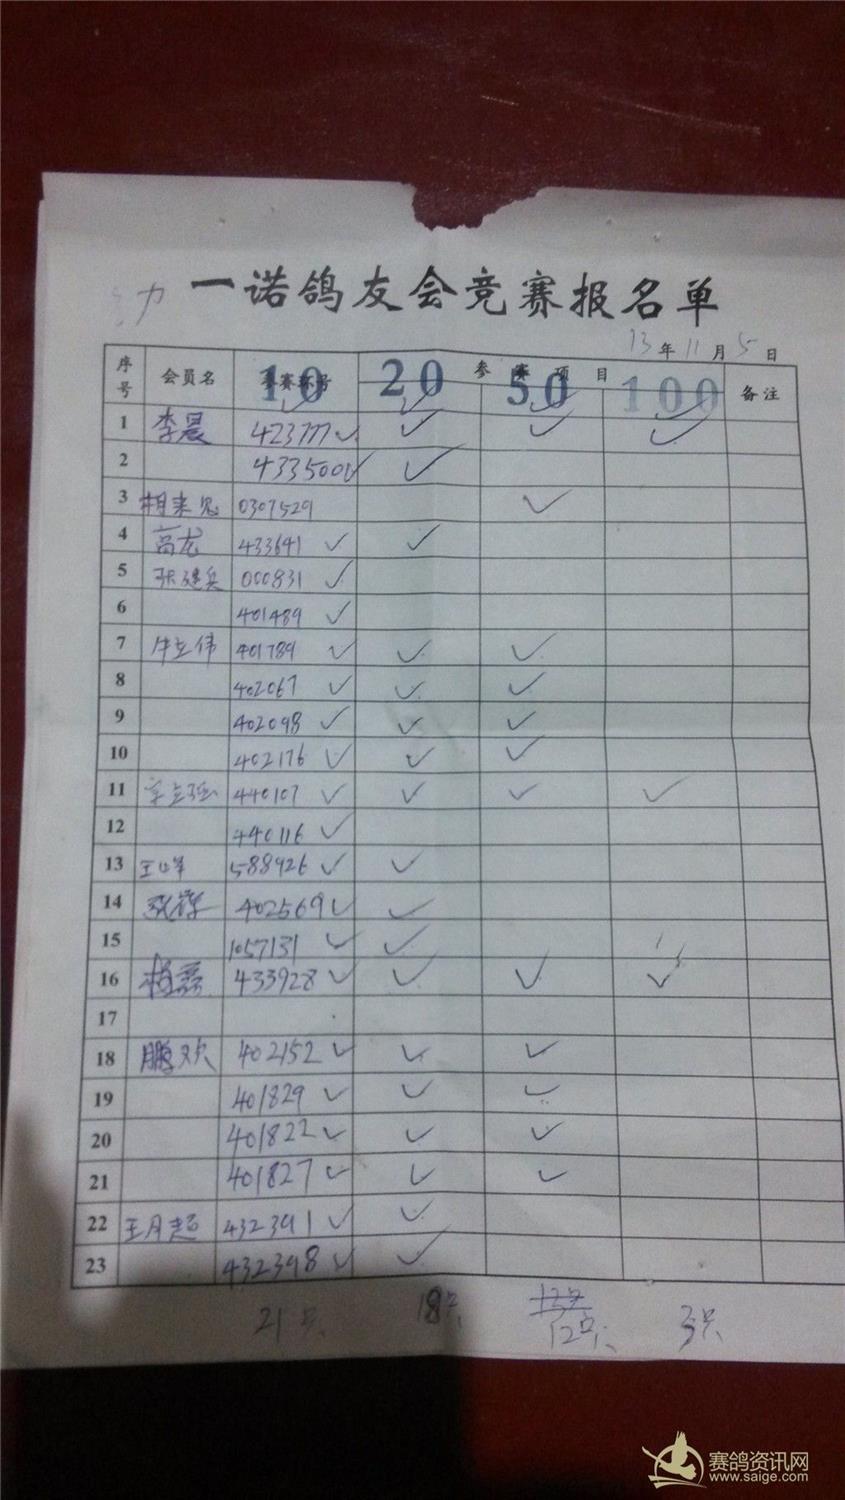 一诺鸽友会竞赛报名单
13年11月5日
序号 会员名 参赛环号 参赛项目 备注
10 20 50 100
1 李晨 423777 ✓ ✓ ✓ ✓
2 433500 ✓ ✓
3 0307529 ✓
4 高龙 433641 ✓ ✓
5 张建兵 000831 ✓
6 401489 ✓
7 牛立伟 401789 ✓ ✓ ✓
8 402067 ✓ ✓ ✓
9 402098 ✓ ✓ ✓
10 402176 ✓ ✓ ✓
11 440107 ✓ ✓ ✓ ✓
12 440116 ✓
13 588926 ✓ ✓
14 402569 ✓ ✓
15 1057131 ✓ ✓
16 433928 ✓ ✓ ✓ ✓
17
18 鹏欢 402152 ✓ ✓ ✓
19 401829 ✓ ✓ ✓
20 401822 ✓ ✓ ✓
21 401827 ✓ ✓ ✓
22 王月超 432391 ✓ ✓
23 432398 ✓ ✓
21只 18只 12只 3只
赛鸽资讯网
www.saige.com